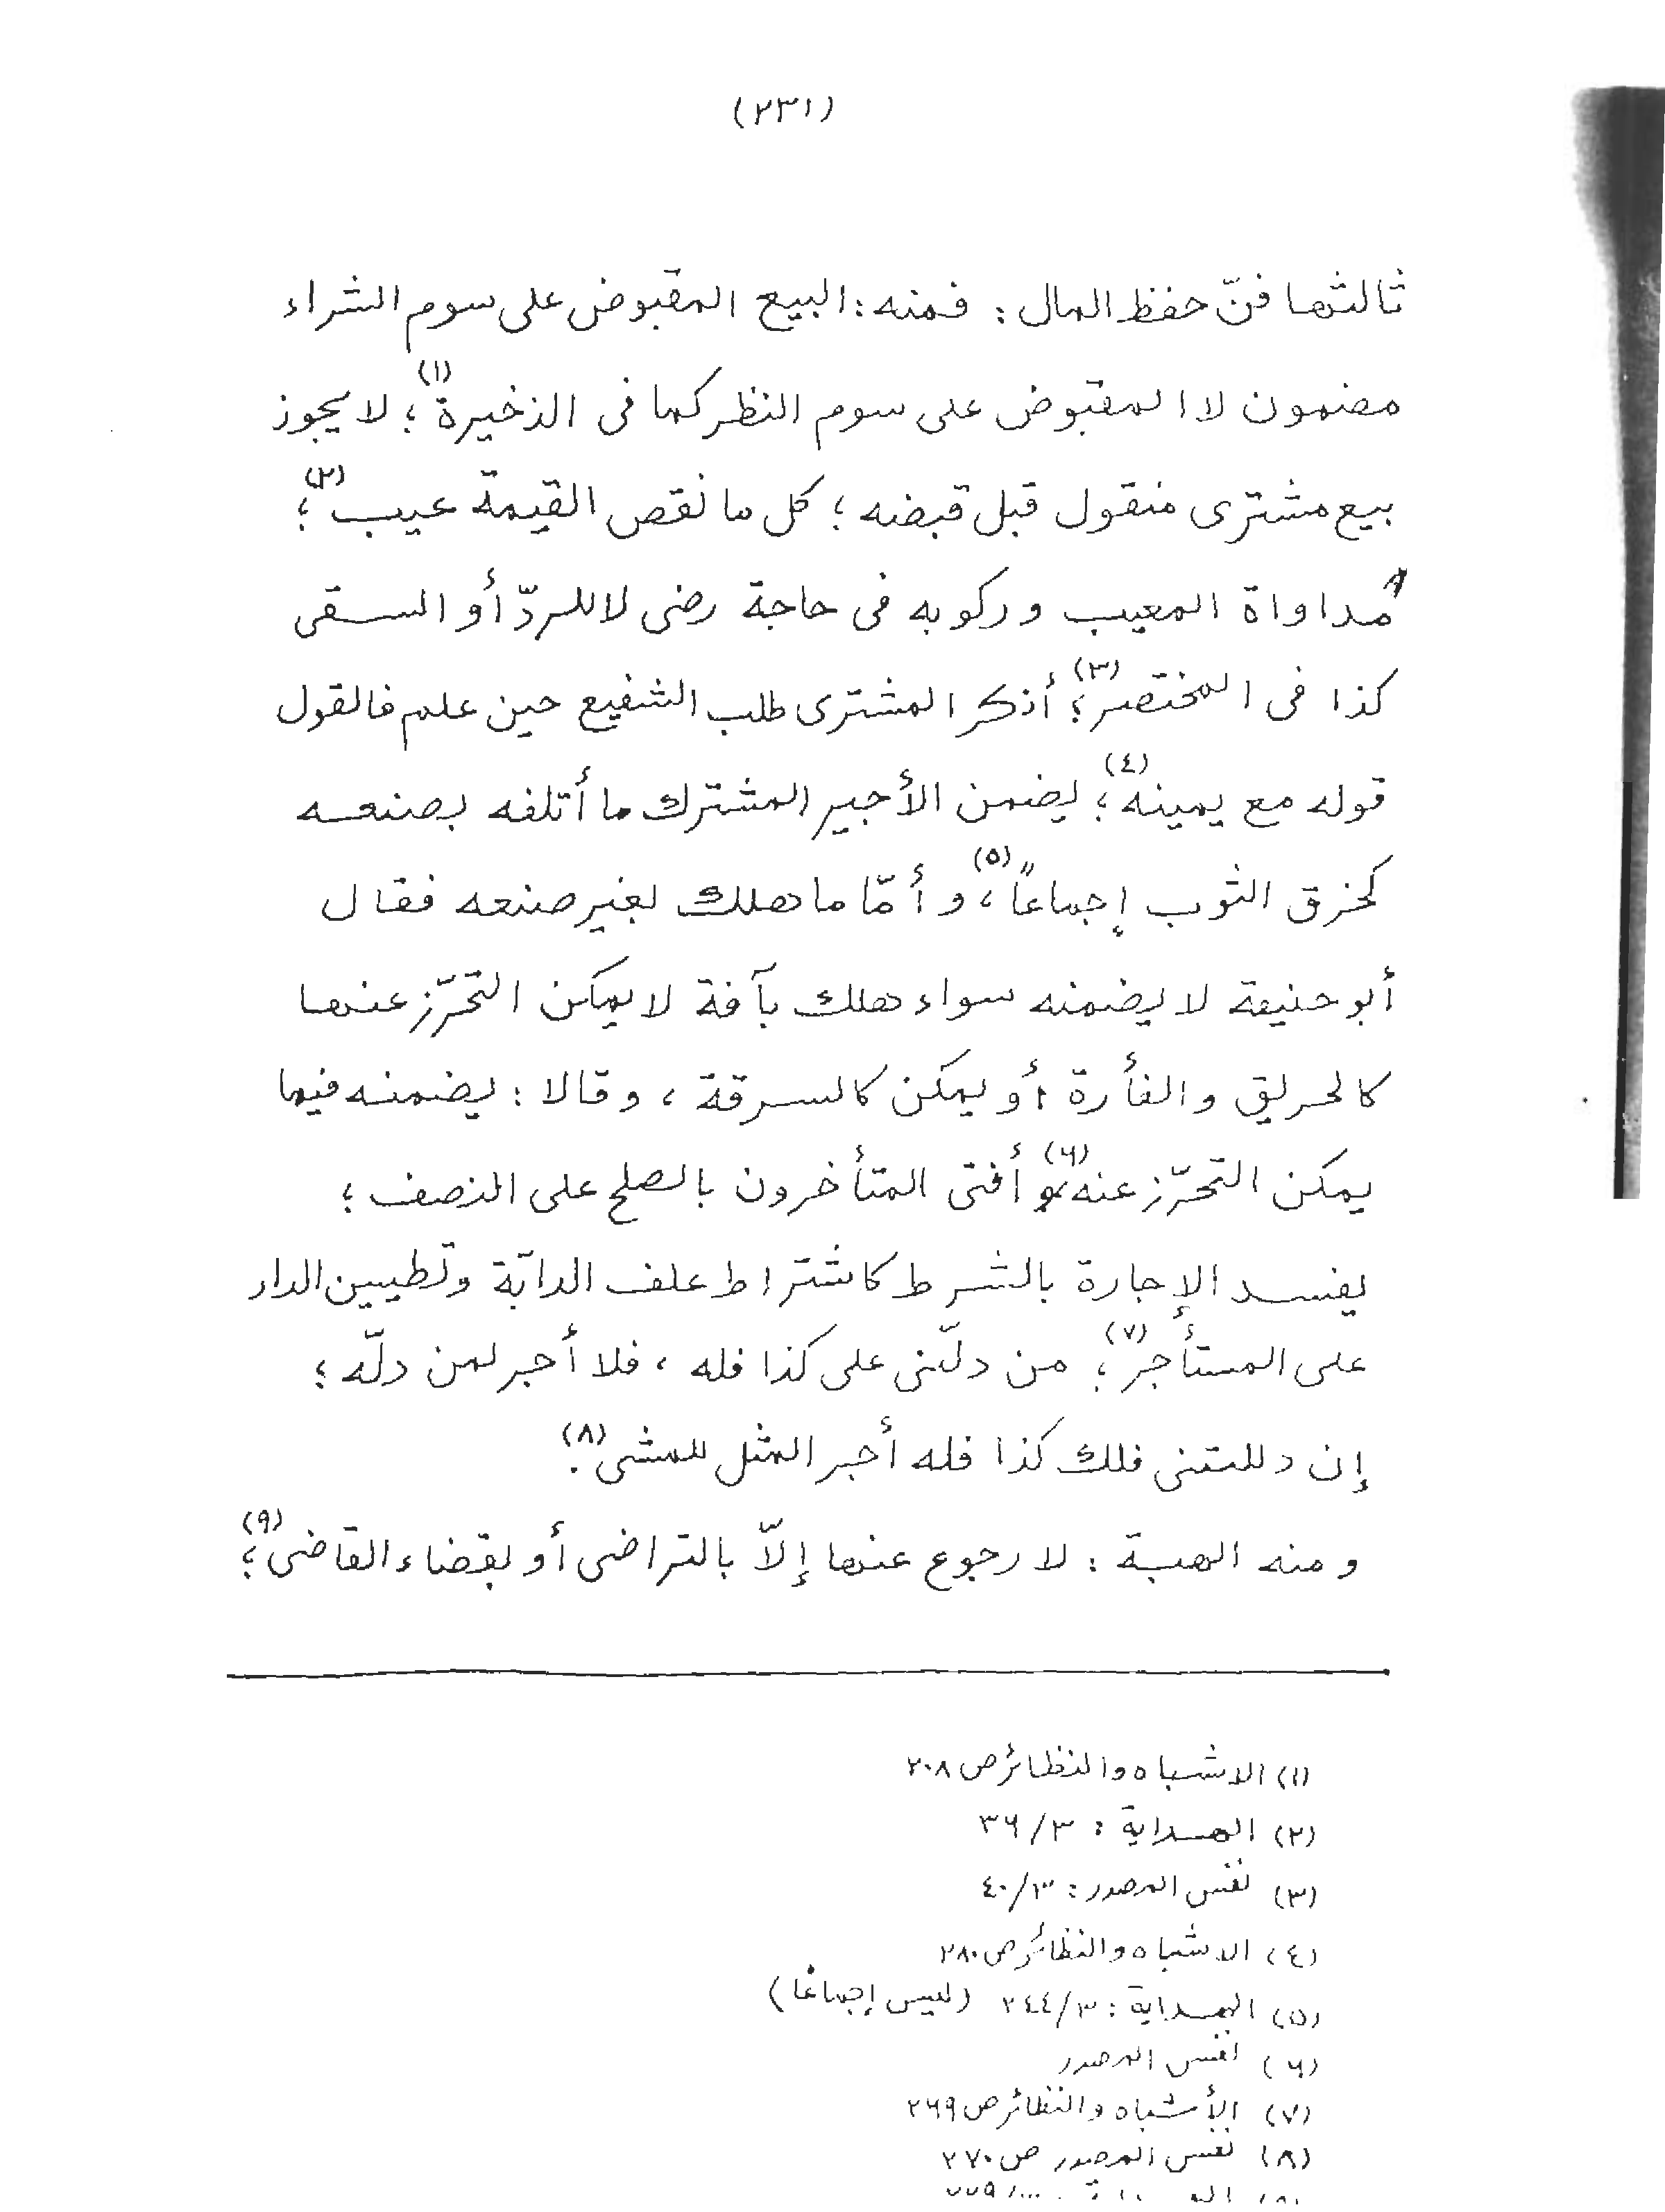 (٢٣١)
ثالثها فنّ حفظ المال : فمنه : البيع المقبوض على سوم الشراء
مضمون لا المقبوض على سوم النظر كما فى الذخيرة(١)؛ لا يجوز
بيع مشترى منقول قبل قبضه ؛ كل ما نقص القيمة عيب(٢)؛
مداواة المعيب وركوبه فى حاجة رضى لا للردّ أو السقى
كذا فى المختصر(٣)؛ أذكر المشترى طلب الشفيع حين علم فالقول
قوله مع يمينه(٤)؛ يضمن الأجير المشترك ما أتلفه بصنعه
كخرق الثوب إجماعاً(٥)، وأمّا ما هلك بغير صنعه فقال
أبو حنيفة لا يضمنه سواء هلك بآفة لا يمكن التحرّز عنها
كالحريق والفأرة أو يمكن كالسرقة ، وقالا : يضمنه فيما
يمكن التحرّز عنه(٦) وأفتى المتأخرون بالصلح على النصف ؛
يفسد الإجارة بالشرط كاشتراط علف الدابّة وتطيين الدار
على المستأجر(٧)؛ من دلّنى على كذا فله ، فلا أجر لمن دلّه ؛
إن دللتنى فلك كذا فله أجر المثل للمشى(٨).
ومنه الهبة : لا رجوع عنها إلاّ بالتراضى أو بقضاء القاضى(٩)؛
(١) الاشباه والنظائر ص ٢٠٨
(٢) الهداية : ٣/ ٣٦
(٣) نفس المصدر : ٣/ ٤٠
(٤) الاشباه والنظائر ص ٢٨٠
(٥) الهداية : ٣/ ٢٤٤ (ليس إجماعًا)
(٦) نفس المصدر
(٧) الأشباه والنظائر ص ٢٦٩
(٨) نفس المصدر ص ٢٧٠